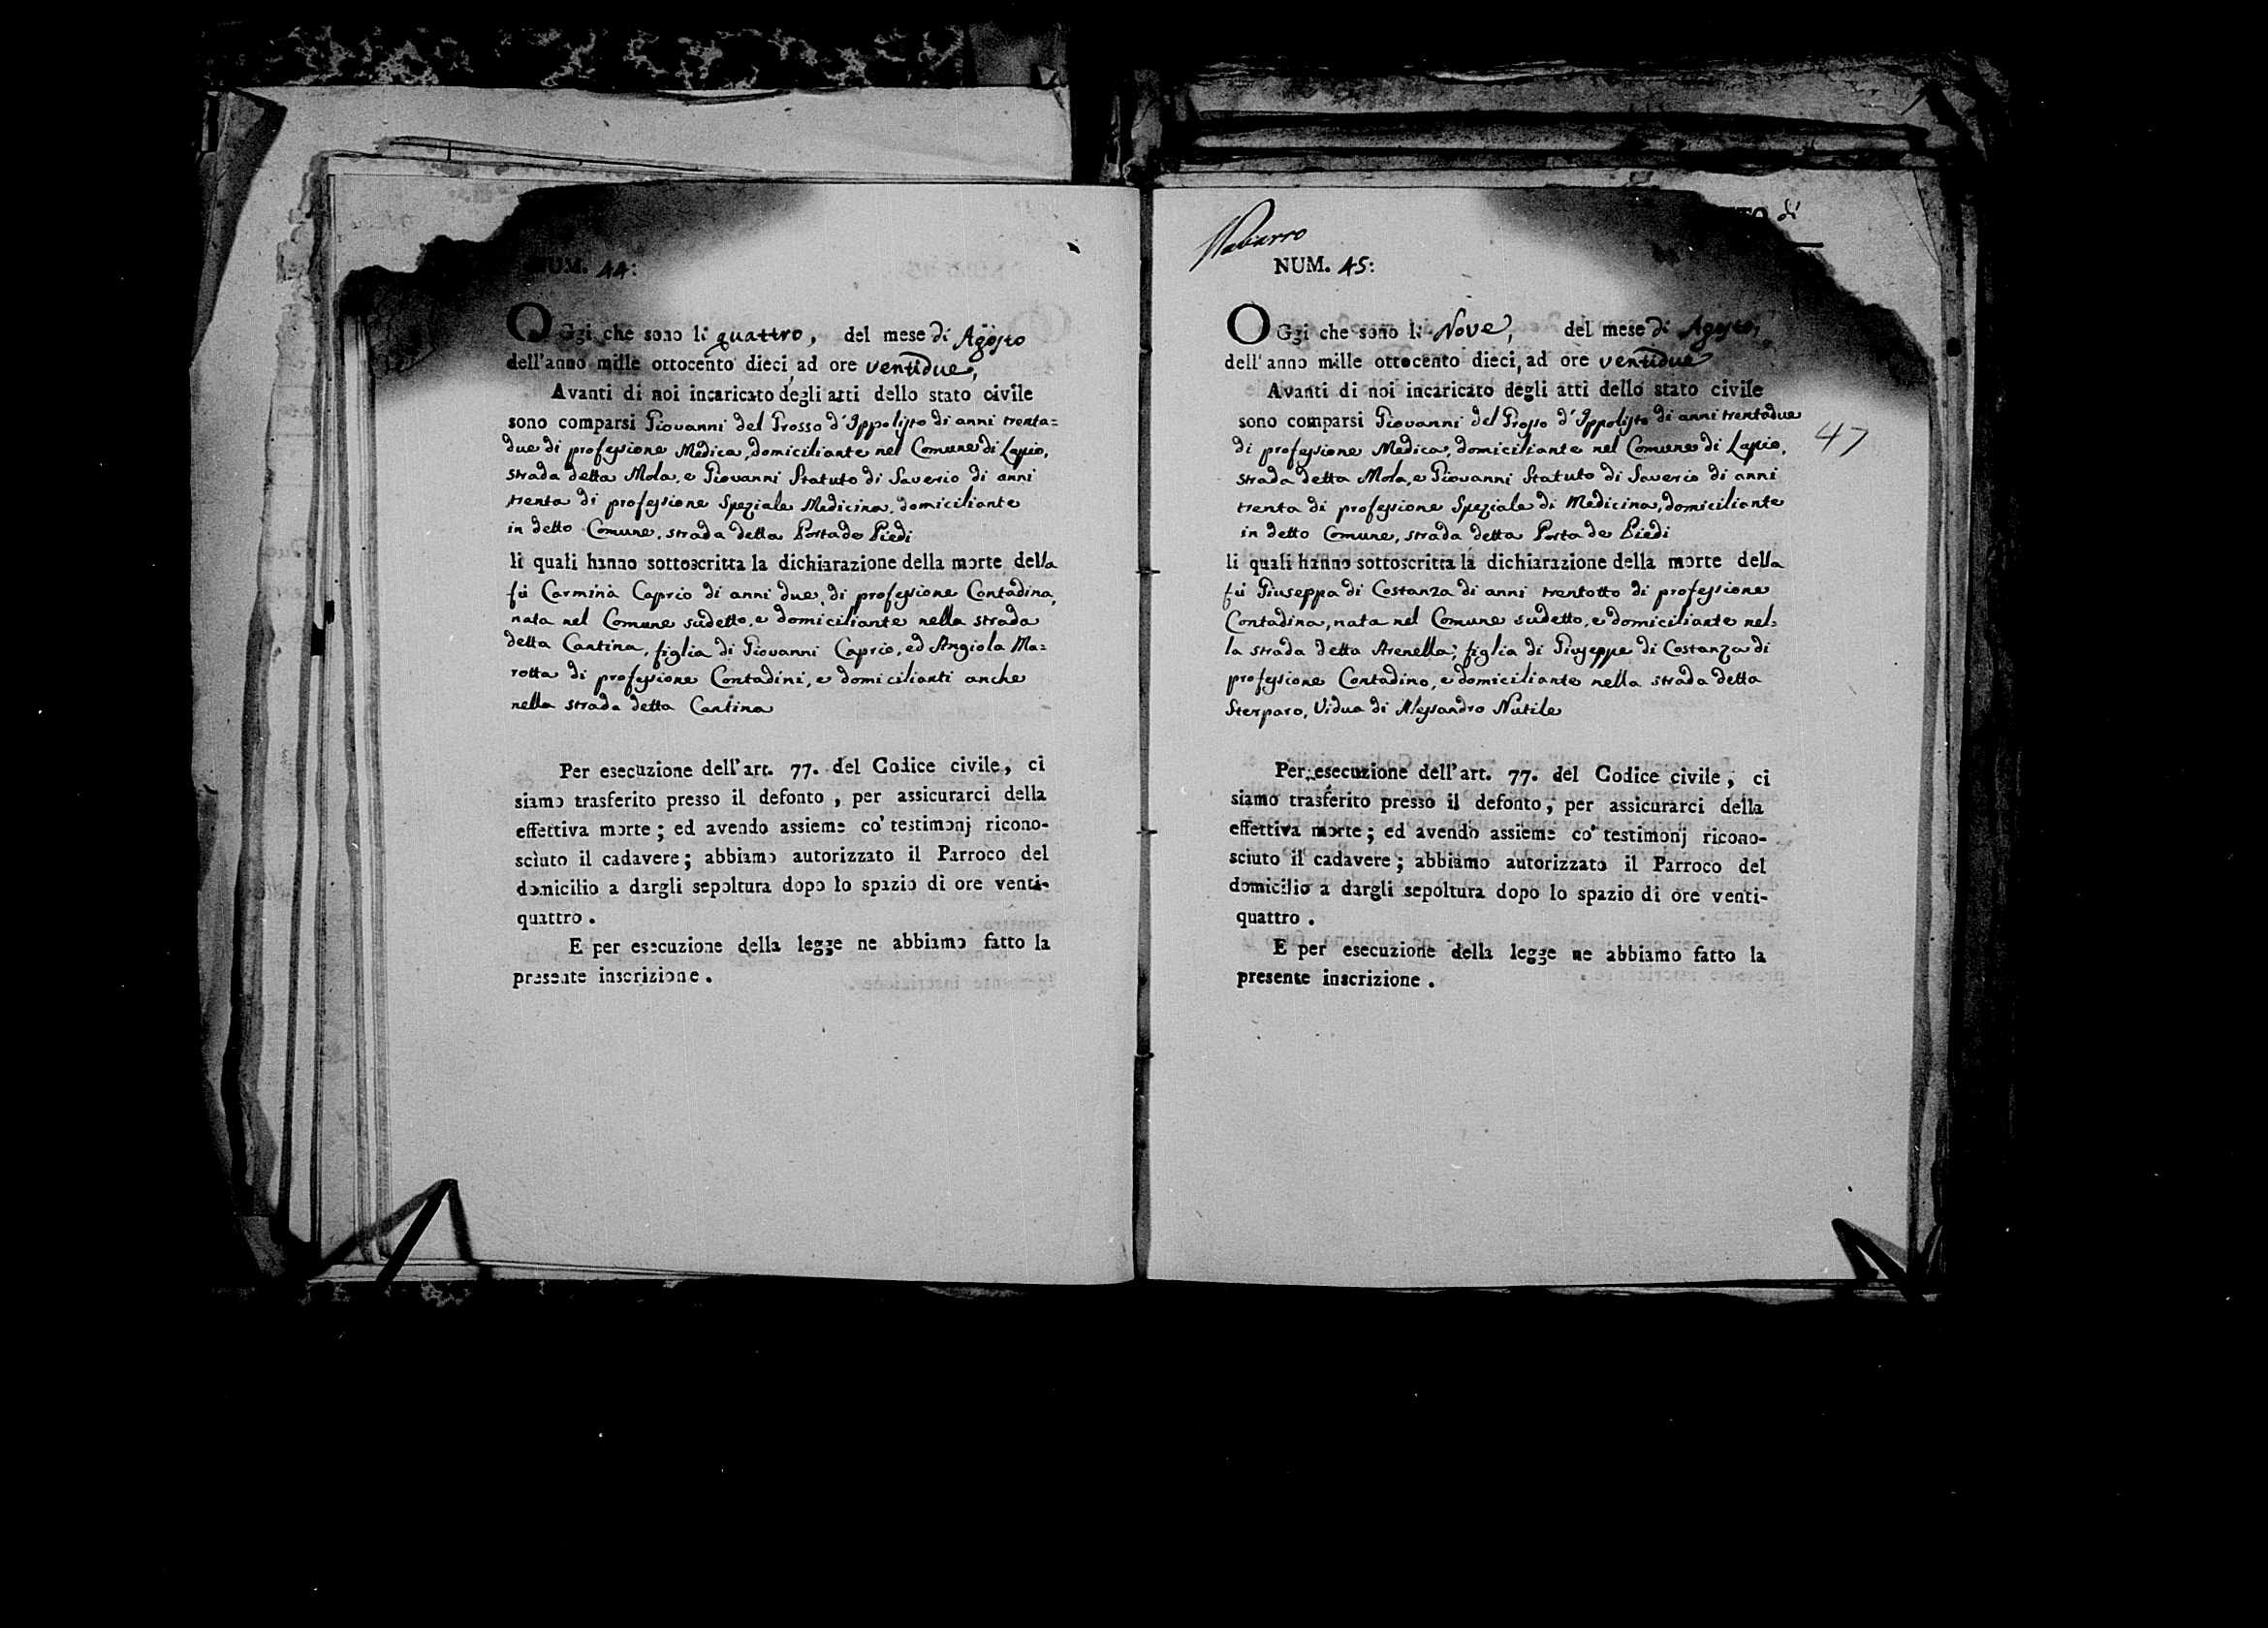 NUM. 44:
OGgi che sono li quattro, del mese di Agosto
dell'anno mille ottocento dieci, ad ore ventidue,
Avanti di noi incaricato degli atti dello stato civile
sono comparsi Giovanni del Grosso d'Ippolisto di anni trenta=
due di professione Medica, domiciliante nel Comune di Lapio,
strada detta Mola, e Giovanni Statuto di Saverio di anni
trenta di professione Speziale Medicina, domiciliante
in detto Comune, strada detta Porta de Piedi
li quali hanno sottoscritta la dichiarazione della morte della
fù Carmina Caprio di anni due, di professione Contadina,
nata nel Comune sudetto, e domiciliante nella strada
detta Cantina, figlia di Giovanni Caprio, ed Angiola Ma=
rotta di professione Contadini, e domicilianti anche
nella strada detta Cantina
Per esecuzione dell'art. 77. del Codice civile, ci
siamo trasferito presso il defonto, per assicurarci della
effettiva morte; ed avendo assieme co' testimonj ricono-
sciuto il cadavere; abbiamo autorizzato il Parroco del
domicilio a dargli sepoltura dopo lo spazio di ore venti-
quattro.
E per esecuzione della legge ne abbiamo fatto la
presente inscrizione.
di
Nabarro
NUM. 45:
OGgi che sono li Nove, del mese di Agosto,
dell'anno mille ottocento dieci, ad ore ventidue
Avanti di noi incaricato degli atti dello stato civile
sono comparsi Giovanni del Grosso d'Ippolisto di anni trentadue
47
di professione Medica, domiciliante nel Comune di Lapio,
strada detta Mola, e Giovanni Statuto di Saverio di anni
trenta di professione Speziale di Medicina, domiciliante
in detto Comune, strada detta Porta de Piedi
li quali hanno sottoscritta la dichiarazione della morte della
fù Giuseppa di Costanza di anni trentotto di professione
Contadina, nata nel Comune sudetto, e domiciliante nel=
la strada detta Arenella; figlia di Giuseppe di Costanza di
professione Contadino, e domiciliante nella strada detta
Sterparo, Vidua di Alessandro Nutile
Per esecuzione dell'art. 77. del Codice civile, ci
siamo trasferito presso il defonto, per assicurarci della
effettiva morte; ed avendo assieme co' testimonj ricono-
sciuto il cadavere; abbiamo autorizzato il Parroco del
domicilio a dargli sepoltura dopo lo spazio di ore venti-
quattro.
E per esecuzione della legge ne abbiamo fatto la
presente inscrizione.